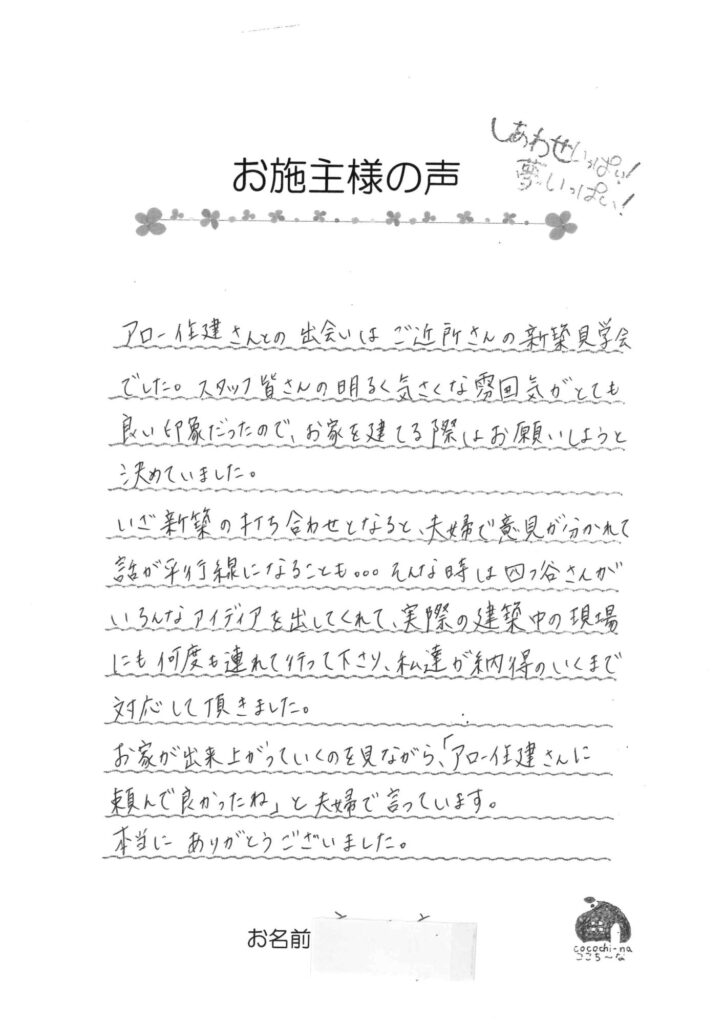 しあわせいっぱい!
夢いっぱい!
お施主様の声
アロー住建さんとの出会いはご近所さんの新築見学会
でした。スタッフ皆さんの明るく気さくな雰囲気がとても
良い印象だったので、お家を建てる際はお願いしようと
決めていました。
いざ新築の打ち合わせとなると、夫婦で意見が分かれて
話が平行線になることも。。。そんな時は四つ谷さんが
いろんなアイディアを出してくれて、実際の建築中の現場
にも何度も連れて行って下さり、私達が納得のいくまで
対応して頂きました。
お家が出来上がっていくのを見ながら、「アロー住建さんに
頼んで良かったね」と夫婦で言っています。
本当にありがとうございました。
お名前
cocochi-na
ここち〜な